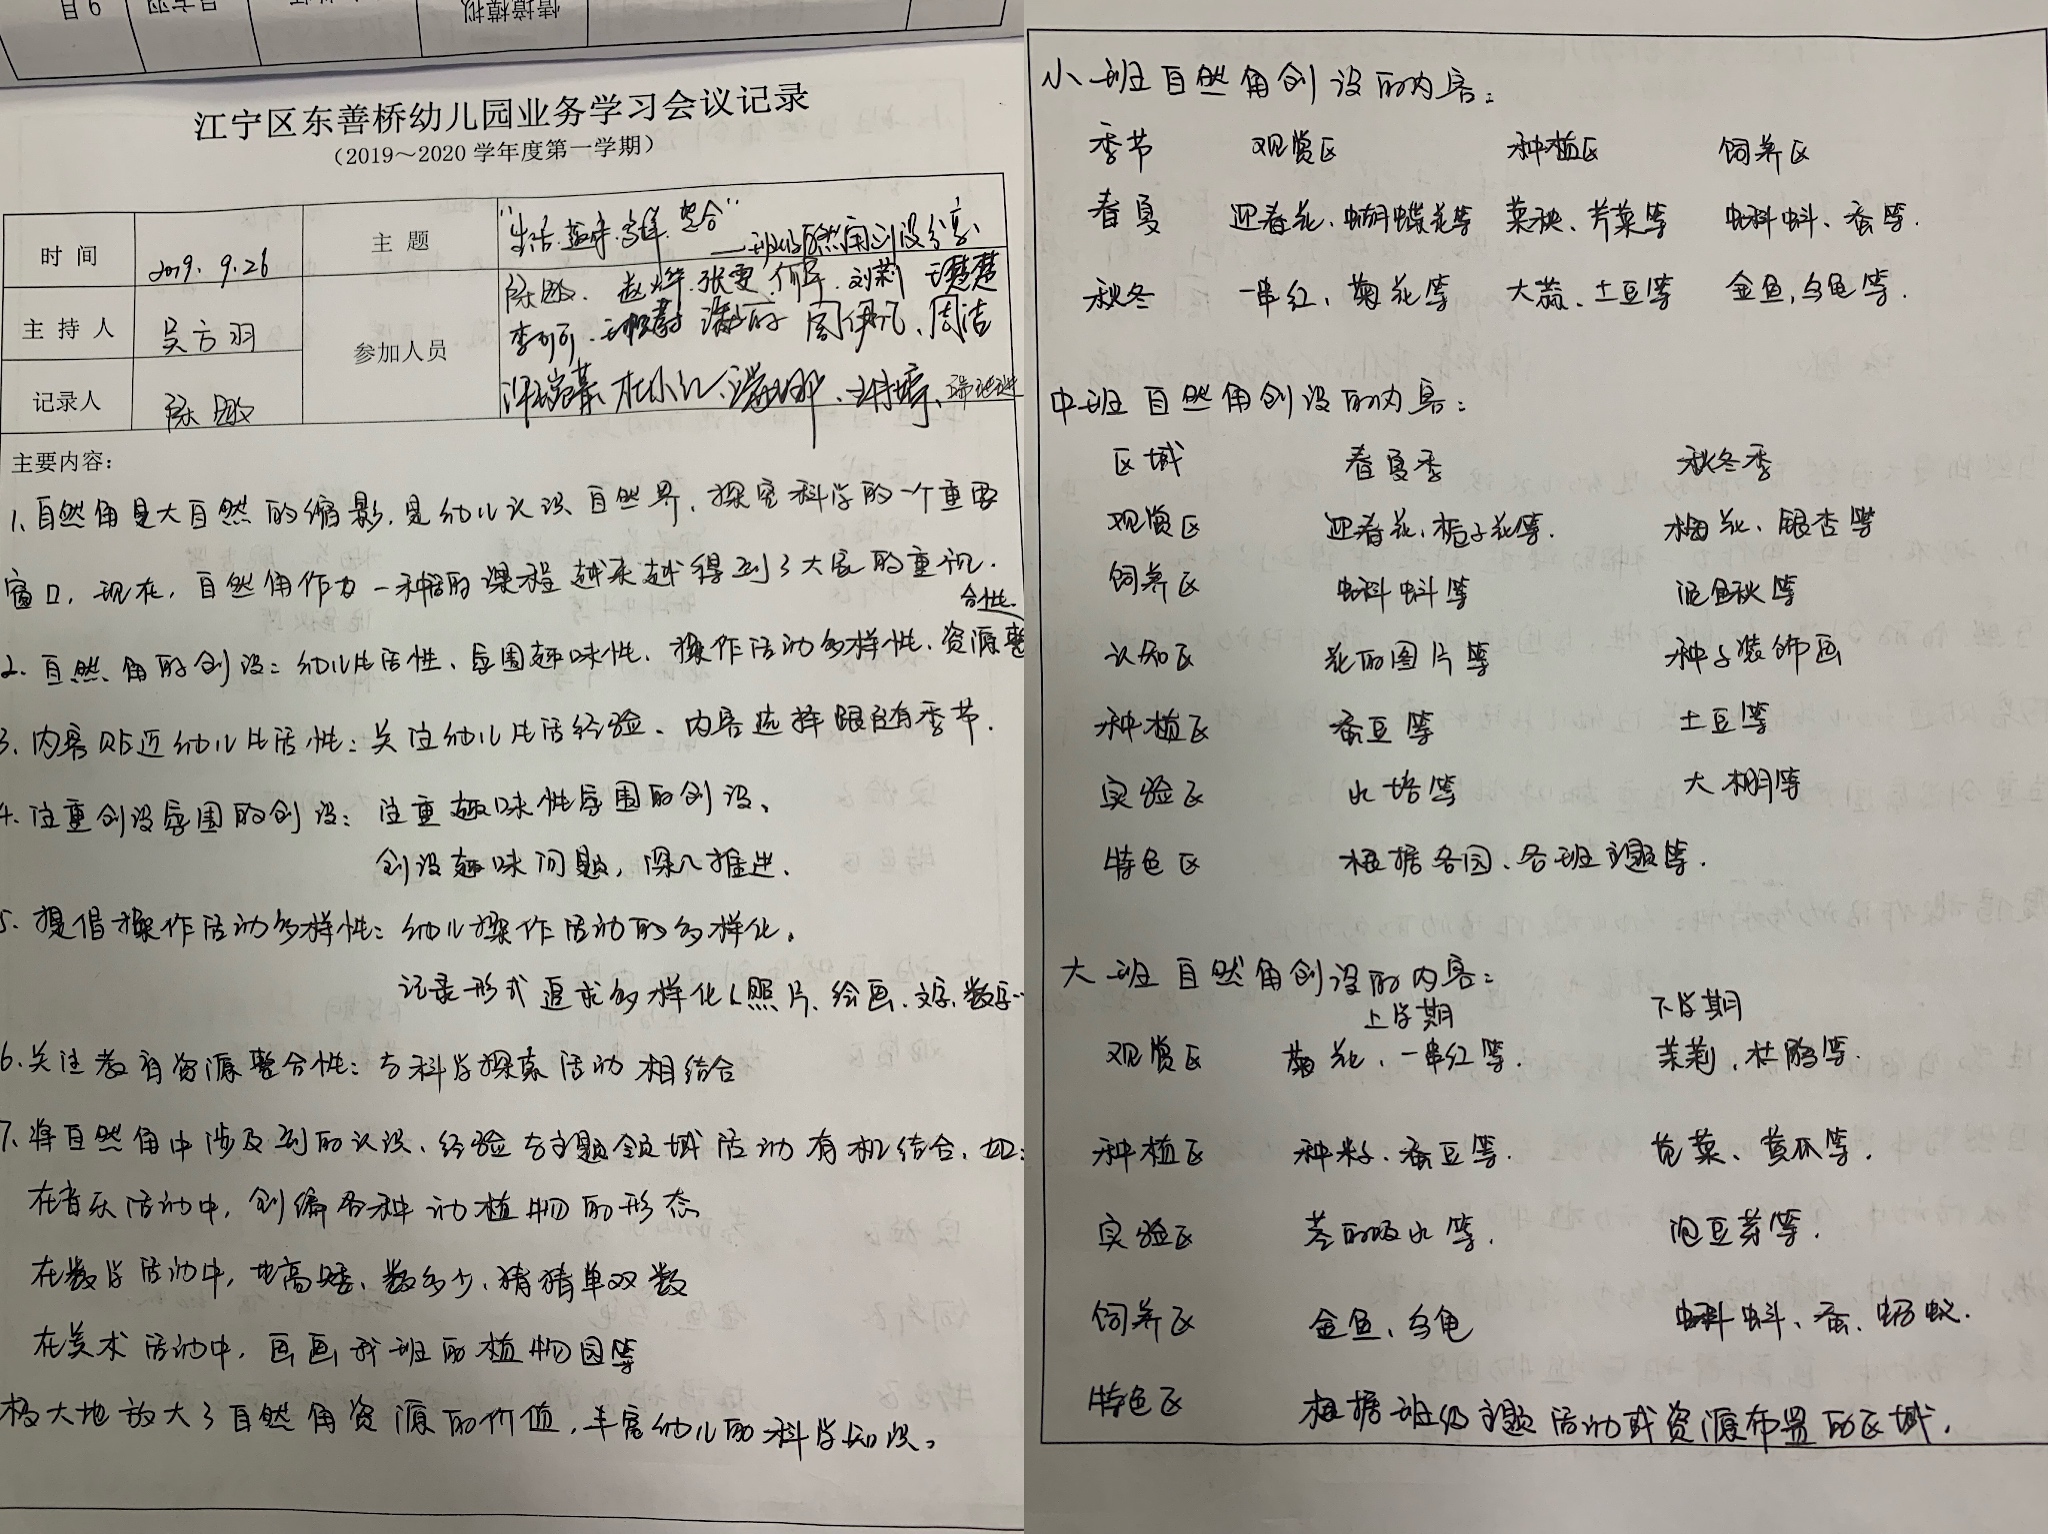 江宁区东善桥幼儿园业务学习会议记录
（2019～2020 学年度第一学期）
时 间
2019. 9.26
主 题
“生活·趣味·多样·整合”
——班级自然角创设分享
主 持 人
吴方羽
参加人员
陈敏、赵烨、张雯、何军、刘莉
李可可、周伊凡、周洁
记录人
陈敏
主要内容：
1、自然角是大自然的缩影，是幼儿认识自然界，探究科学的一个重要
窗口，现在，自然角作为一种活的课程越来越得到了大家的重视．
2、自然角的创设：幼儿生活性、氛围趣味性、操作活动多样性、资源整合性．
3、内容贴近幼儿生活性：关注幼儿生活经验、内容选择跟随季节．
4、注重创设氛围的创设：注重趣味性氛围的创设、
创设趣味问题，深入推进．
5、提倡操作活动多样性：幼儿操作活动的多样化。
记录形式追求多样化（照片、绘画、文字、数字…
6、关注教育资源整合性：与科学探索活动相结合
7、将自然角中涉及到的认识、经验与主题领域活动有机结合，如：
在音乐活动中，创编各种动植物的形态
在数学活动中，比高矮、数多少、猜猜单双数
在美术活动中，画画我班的植物园等
极大地放大了自然角资源的价值，丰富幼儿的科学知识。
小班自然角创设的内容：
季节 观赏区 种植区 饲养区
春夏 迎春花、蝴蝶花等 菜秧、芹菜等 蝌蚪、蚕等．
秋冬 一串红、菊花等 大蒜、土豆等 金鱼，乌龟等．
中班自然角创设的内容：
区域 春夏季 秋冬季
观赏区 迎春花、栀子花等． 梅花、银杏等
饲养区 蝌蚪等 泥鳅等
认知区 花的图片等 种子装饰画
种植区 蚕豆等 土豆等
实验区 水培等 大棚等
特色区 根据各园、各班主题等．
大班自然角创设的内容：
上学期 下学期
观赏区 菊花、一串红等． 茉莉，杜鹃等．
种植区 种籽、蚕豆等． 苋菜、黄瓜等．
实验区 茎的吸水等． 泡豆芽等．
饲养区 金鱼、乌龟 蝌蚪、蚕、蚂蚁．
特色区 根据班级主题活动或资源布置的区域．